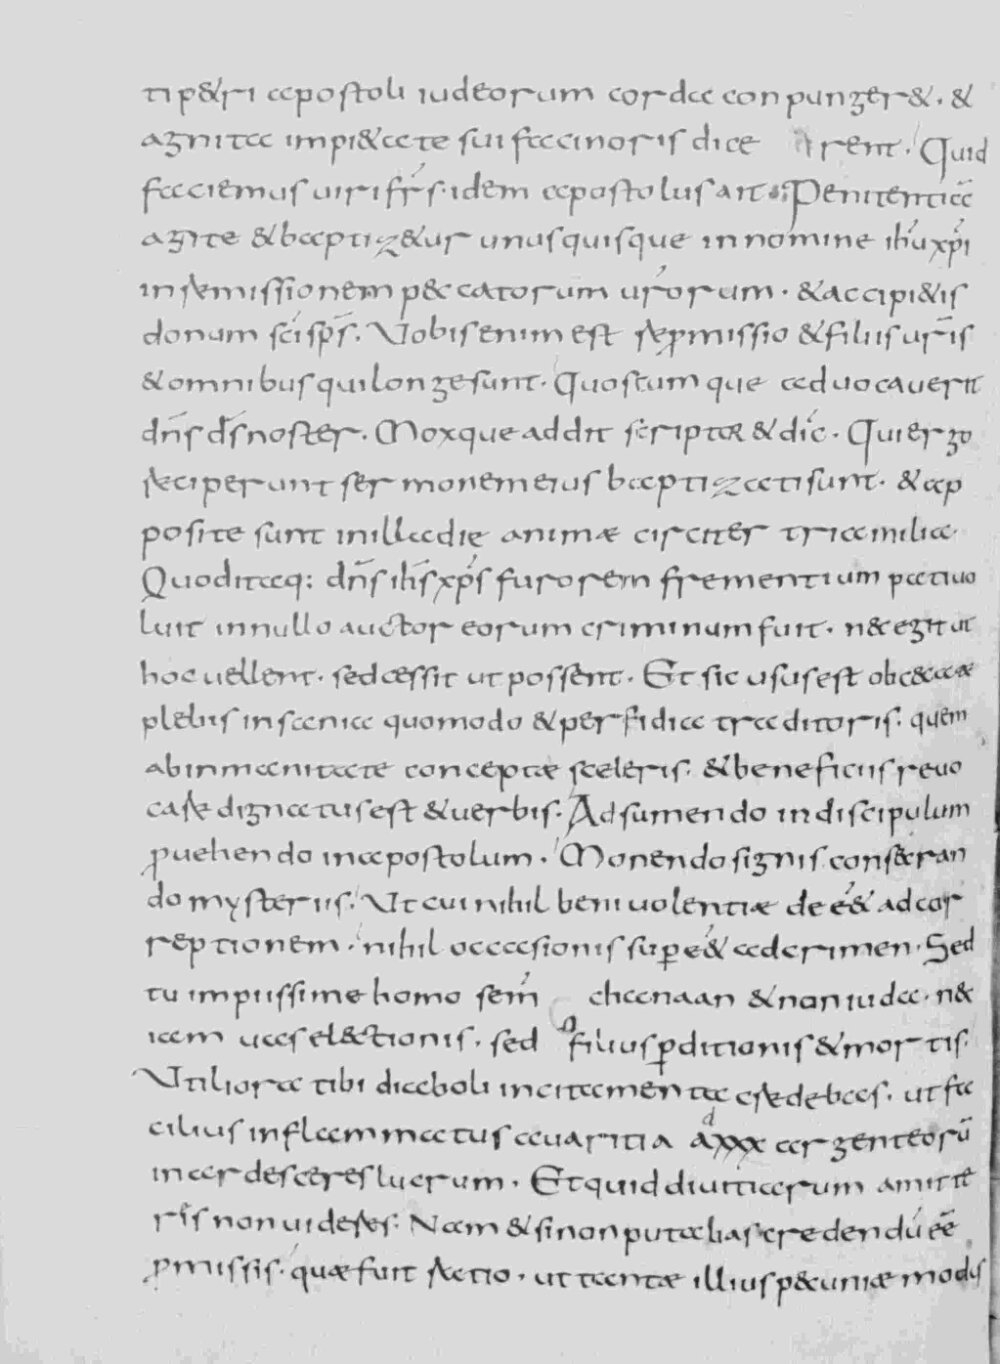 ti p&ri apostoli iudeorum corda conpunger&. &
agnita impi&ate sui facinoris dice rent. Quid
faciemus uiri fr̄s. idem apostolus ait; Penitentiā
agite & baptiz&ur unusquisque in nomine ih̄u xp̄i
in remissionem peccatorum ur̄orum. & accipi&is
donum sc̄i sp̄s. Vobis enim est repromissio & filiis ur̄is
& omnibus qui longe sunt. Quoscumque aduocauerit
dn̄s ds̄ noster. Moxque addit scriptor & dic̄. Qui ergo
receperunt sermonem eius baptizati sunt. & ap
posite sunt in illa die animæ circiter tria milia.
Quod itaq: dn̄s ih̄s xp̄s furorem frementium patiuo
luit in nullo auctor eorum criminum fuit. n& egit ut
hoc uellent. sed cessit ut possent. Et sic usus est obc&catæ
plebis insania quomodo & perfidia traditoris. quem
ab inmanitate conceptæ sceleris. & beneficiis reuo
care dignatus est & uerbis. Adsumendo in discipulum
ꝓuehendo in apostolum. Monendo signis consecran
do mysteriis. Vt cui nihil beniuolentiæ deē& ad cor
reptionem. nihil occasionis suꝑe& ad crimen. Sed
tu impiissime homo sem̄ chanaan & non iuda. n&
iam uas el&ctionis. sed filius ꝑditionis & mortis.
Vtiliora tibi diaboli incitamenta credebas. ut fa
cilius inflammatus auaritia ad xxx argenteorū
inardesceres lucrum. Et quid diuitiarum amitte
ris non uideres. Nam & si non putabas credendū eē
ꝓmissis. quæ fuit ratio. ut tantæ illius p&uniæ modus